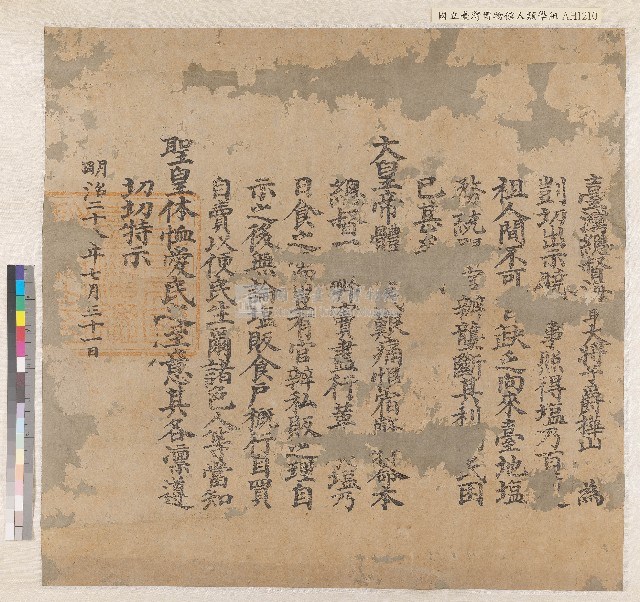 國立臺灣博物館人類學組 AH1210
臺灣總督海軍大將子爵樺山 為
剴切出示曉 事照得塩乃百
祖人間不可 缺之向來臺地塩
務統 官辦壟斷其利 民困
已甚
大皇帝體 艱痛恨宿弊 本
總督 弊實盡行革 塩乃
日食之 有官辦私販之理自
示之後無論塩販食戶概行自買
自賣以便民生爾諸色人等當知
聖皇体恤愛民之至意其各凜遵
切切特示
明治二十八年七月三十一日